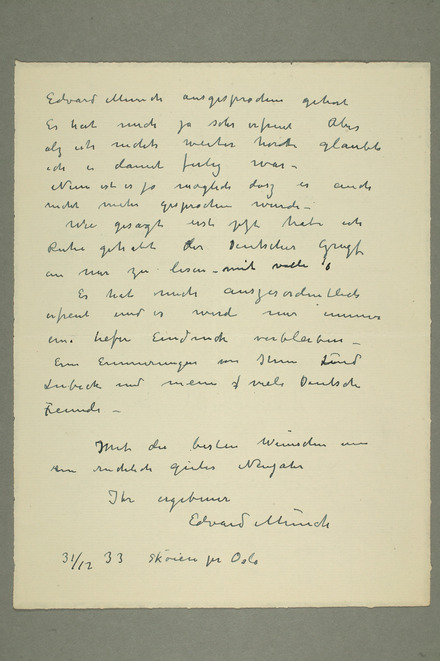 Edvard Munch ausgesprochen gehört
Es hat mich ja sehr erfreut Aber
als ich nichts weiter hörte glaubte
ich es damit fertig war –
Nun ist es ja möglich dass es auch
nicht mehr gesprochen wurde –
Wie gesagt erst jetzt habe ich
Ruhe gehabt der Deutscher Gruss
an mir zu lesen – mit
Es hat mich ausserordentlich
erfreut und es wird mir immer
ein tiefer Eindruck verbleiben –
Eine Erinnerungen von Ihnen und
Lübeck und meine viele Deutsche
Freunde –
Mit die besten Wünschen um
ein gutes Neujahr
Ihr ergebener
Edvard Munch
31/12 33 Skøien pr Oslo